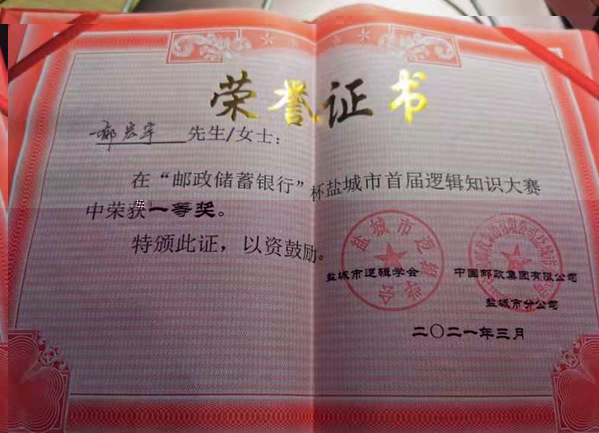 荣誉证书
郝宏宇 先生/女士：
在“邮政储蓄银行”杯盐城市首届逻辑知识大赛
中荣获一等奖。
特颁此证，以资鼓励。
盐城市逻辑学会
盐城市逻辑学会 中国邮政集团有限公司
盐城市分公司
二〇二一年三月